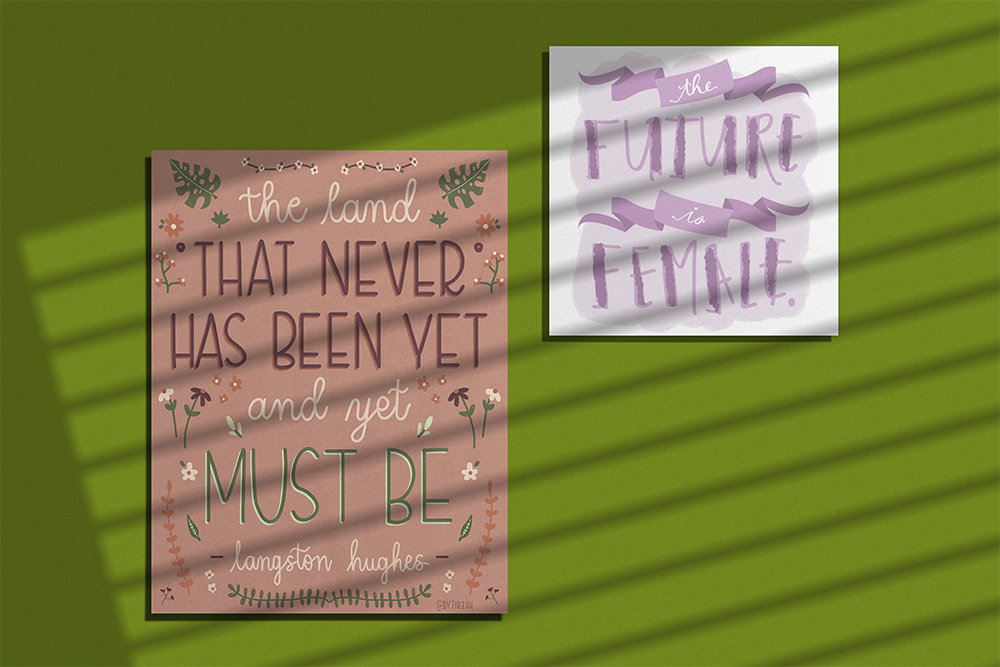 the land
THAT NEVER
HAS BEEN YET
and yet
MUST BE
- langston hughes -
@BYTIRZAH
the
FUTURE
is
FEMALE.